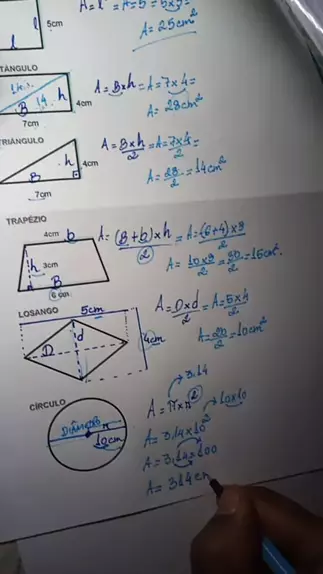 l
l
5cm
A = l² = A = 5² = 5x5 =
A = 25cm²
B
h
4cm
7cm
A = B x h = A = 7 x 4 =
A = 28cm²
B
h
4cm
7cm
A = B x h / 2 = A = 7 x 4 / 2 =
A = 28 / 2 = 14cm²
TRAPÉZIO
4cm
b
h
3cm
B
6 cm
A = (B + b) x h / 2 = A = (6 + 4) x 3 / 2
A = 10 x 3 / 2 = 30 / 2 = 15cm².
LOSANGO
5cm
D
d
4cm
A = D x d / 2 = A = 5 x 4 / 2
A = 20 / 2 = 10cm²
CÍRCULO
DIÂMETRO
r
10cm
3,14
A = π x r²
10x10
A = 3,14 x 10²
A = 3,14 x 100
A = 314 cm